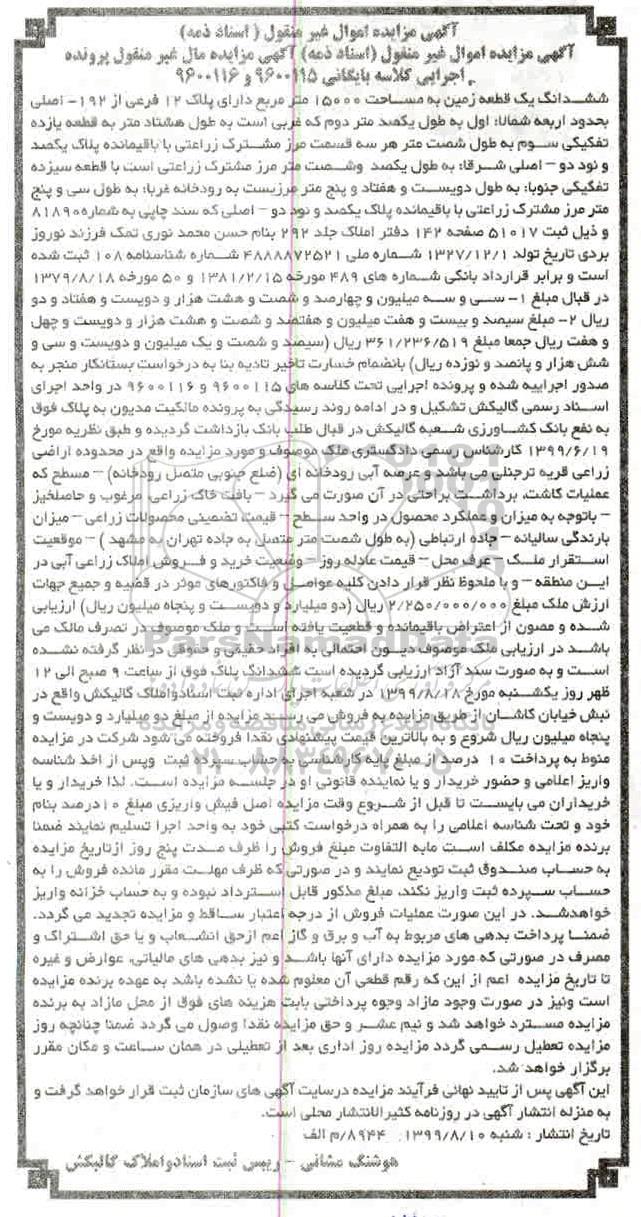 آگهی مزایده اموال غیر منقول ( اسناد ذمه)
آگهی مزایده اموال غیر منقول (اسناد ذمه) آگهی مزایده مال غیر منقول پرونده
اجرایی کلاسه بایگانی ۹۶۰۰۱۱۵ و ۹۶۰۰۱۱۶
ششدانگ یک قطعه زمین به مساحت ۱۵۰۰۰ متر مربع دارای پلاک ۱۲ فرعی از ۱۹۲- اصلی
بحدود اربعه شمالا: اول به طول یکصد متر دوم که غربی است به طول هشتاد متر به قطعه یازده
تفکیکی سوم به طول شصت متر هر سه قسمت مرز مشترک زراعتی با باقیمانده پلاک یکصد
و نود دو – اصلی شرقا: به طول یکصد وشصت متر مرز مشترک زراعتی است با قطعه سیزده
تفگیکی جنوبا: به طول دویست و هفتاد و پنج متر مرزیست به رودخانه غربا: به طول سی و پنج
متر مرز مشترک زراعتی با باقیمانده پلاک یکصد و نود دو – اصلی که سند چاپی به شماره ۸۱۸۹۰
و ذیل ثبت ۵۱۰۱۷ صفحه ۱۴۲ دفتر املاک جلد ۲۹۲ بنام حسن محمد نوری تمک فرزند نوروز
بردی تاریخ تولد ۱۳۲۷/۱۲/۱ شماره ملی ۴۸۸۸۸۷۲۵۲۱ شماره شناسنامه ۱۰۸ ثبت شده
است و برابر قرارداد بانکی شماره های ۴۸۹ مورخه ۱۳۸۱/۲/۱۵ و ۵۰ مورخه ۱۳۷۹/۸/۱۸
در قبال مبلغ ۱- سی و سه میلیون و چهارصد و شصت و هشت هزار و دویست و هفتاد و دو
ریال ۲- مبلغ سیصد و بیست و هفت میلیون و هفتصد و شصت و هشت هزار و دویست و چهل
و هفت ریال جمعا مبلغ ۳۶۱/۲۳۶/۵۱۹ ریال (سیصد و شصت و یک میلیون و دویست و سی و
شش هزار و پانصد و نوزده ریال) بانضمام خسارت تاخیر تادیه بنا به درخواست بستانکار منجر به
صدور اجراییه شده و پرونده اجرایی تحت کلاسه های ۹۶۰۰۱۱۵ و ۹۶۰۰۱۱۶ در واحد اجرای
اسناد رسمی گالیکش تشکیل و در ادامه روند رسیدگی به پرونده مالکیت مدیون به پلاک فوق
به نفع بانک کشاورزی شعبه گالیکش در قبال طلب بانک بازداشت گردیده و طبق نظریه مورخ
۱۳۹۹/۶/۱۹ کارشناس رسمی دادگستری ملک موصوف و مورد مزایده واقع در محدوده اراضی
زراعی قریه ترجنلی می باشد و عرصه آبی رودخانه ای (ضلع جنوبی متصل رودخانه) – مسطح که
عملیات کاشت، برداشت براحتی در آن صورت می گیرد – بافت خاک زراعی مرغوب و حاصلخیز
– باتوجه به میزان و عملکرد محصول در واحد سطح – قیمت تضمینی محصولات زراعی – میزان
بارندگی سالیانه – جاده ارتباطی (به طول شصت متر متصل به جاده تهران به مشهد ) – موقعیت
استقرار ملک – عرف محل – قیمت عادله روز – وضعیت خرید و فروش املاک زراعی آبی در
این منطقه – و با ملحوظ نظر قرار دادن کلیه عوامل و فاکتورهای موثر در قضیه و جمیع جهات
ارزش ملک مبلغ ۲/۲۵۰/۰۰۰/۰۰۰ ریال (دو میلیارد و دویست و پنجاه میلیون ریال) ارزیابی
شده و مصون از اعتراض باقیمانده و قطعیت یافته است و ملک موصوف در تصرف مالک می
باشد در ارزیابی ملک موصوف دیون احتمالی به افراد حقیقی و حقوقی در نظر گرفته نشده
است و به صورت سند آزاد ارزیابی گردیده است ششدانگ پلاک فوق از ساعت ۹ صبح الی ۱۲
ظهر روز یکشنبه مورخ ۱۳۹۹/۸/۱۸ در شعبه اجرای اداره ثبت اسنادواملاک گالیکش واقع در
نبش خیابان کاشان از طریق مزایده به فروش می رسد مزایده از مبلغ دو میلیارد و دویست و
پنجاه میلیون ریال شروع و به بالاترین قیمت پیشنهادی نقدا فروخته می شود شرکت در مزایده
منوط به پرداخت ۱۰ درصد از مبلغ پایه کارشناسی به حساب سپرده ثبت وپس از اخذ شناسه
واریز اعلامی و حضور خریدار و یا نماینده قانونی او در جلسه مزایده است. لذا خریدار و یا
خریداران می بایست تا قبل از شروع وقت مزایده اصل فیش واریزی مبلغ ۱۰درصد بنام
خود و تحت شناسه اعلامی را به همراه درخواست کتبی خود به واحد اجرا تسلیم نمایند ضمنا
برنده مزایده مکلف است مابه التفاوت مبلغ فروش را ظرف مدت پنج روز ازتاریخ مزایده
به حساب صندوق ثبت تودیع نمایند و در صورتی که ظرف مهلت مقرر مانده فروش را به
حساب سپرده ثبت واریز نکند، مبلغ مذکور قابل استرداد نبوده و به حساب خزانه واریز
خواهدشد. در این صورت عملیات فروش از درجه اعتبار ساقط و مزایده تجدید می گردد.
ضمنا پرداخت بدهی های مربوط به آب و برق و گاز اعم ازحق انشعاب و یا حق اشتراک و
مصرف در صورتی که مورد مزایده دارای آنها باشد و نیز بدهی های مالیاتی، عوارض و غیره
تا تاریخ مزایده اعم از این که رقم قطعی آن معلوم شده یا نشده باشد به عهده برنده مزایده
است ونیز در صورت وجود مازاد وجوه پرداختی بابت هزینه های فوق از محل مازاد به برنده
مزایده مسترد خواهد شد و نیم عشر و حق مزایده نقدا وصول می گردد ضمنا چنانچه روز
مزایده تعطیل رسمی گردد مزایده روز اداری بعد از تعطیلی در همان ساعت و مکان مقرر
برگزار خواهد شد.
این آگهی پس از تایید نهائی فرآیند مزایده درسایت آگهی های سازمان ثبت قرار خواهد گرفت و
به منزله انتشار آگهی در روزنامه کثیرالانتشار محلی است.
تاریخ انتشار : شنبه ۱۳۹۹/۸/۱۰ ۸۹۴۴/م الف
هوشنگ مشانی – رییس ثبت اسنادواملاک گالیکش
ParsNamadData
۰۲۱-۸۸۳۴۹۶۷۰-۵